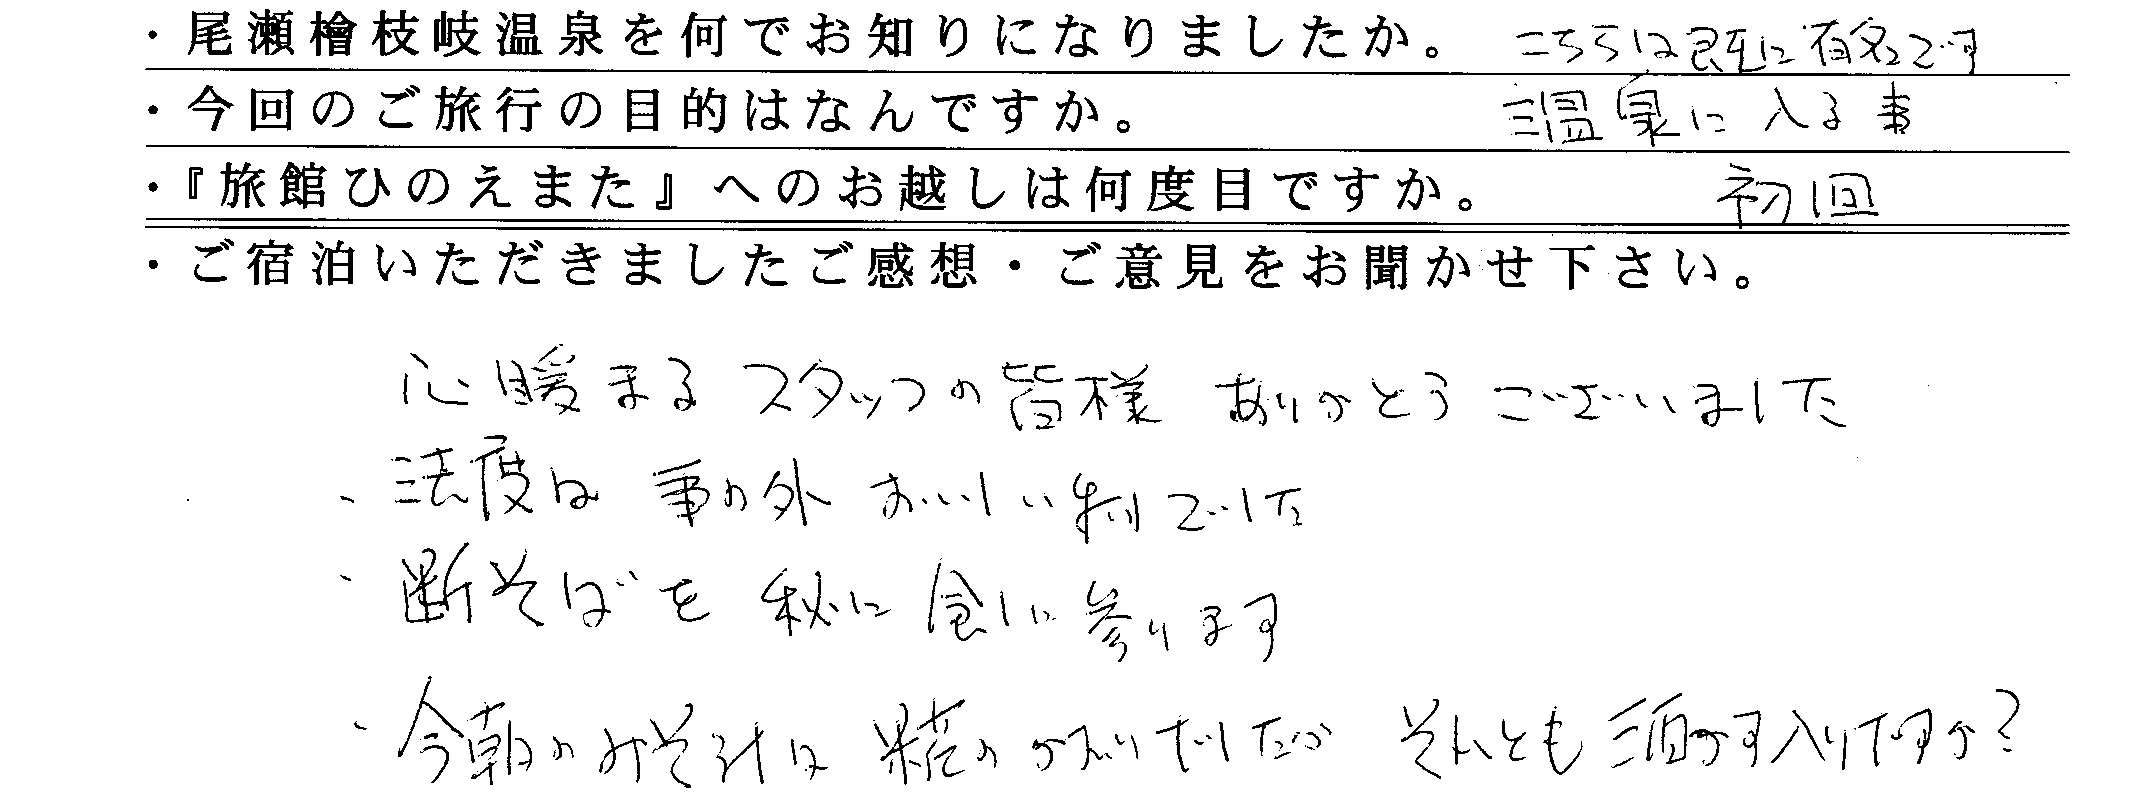 ・尾瀬檜枝岐温泉を何でお知りになりましたか。 こちらは既に有名です
・今回のご旅行の目的はなんですか。 温泉に入る事
・『旅館ひのえまた』へのお越しは何度目ですか。 初回
・ご宿泊いただきましたご感想・ご意見をお聞かせ下さい。
心暖まるスタッフの皆様 ありがとうございました
・法度は 事の外 おいしい物でした
・断そばを 秋に 食しに 参ります
・今朝のみそ汁は のかおりでしたが それとも 酒かす入りですか?